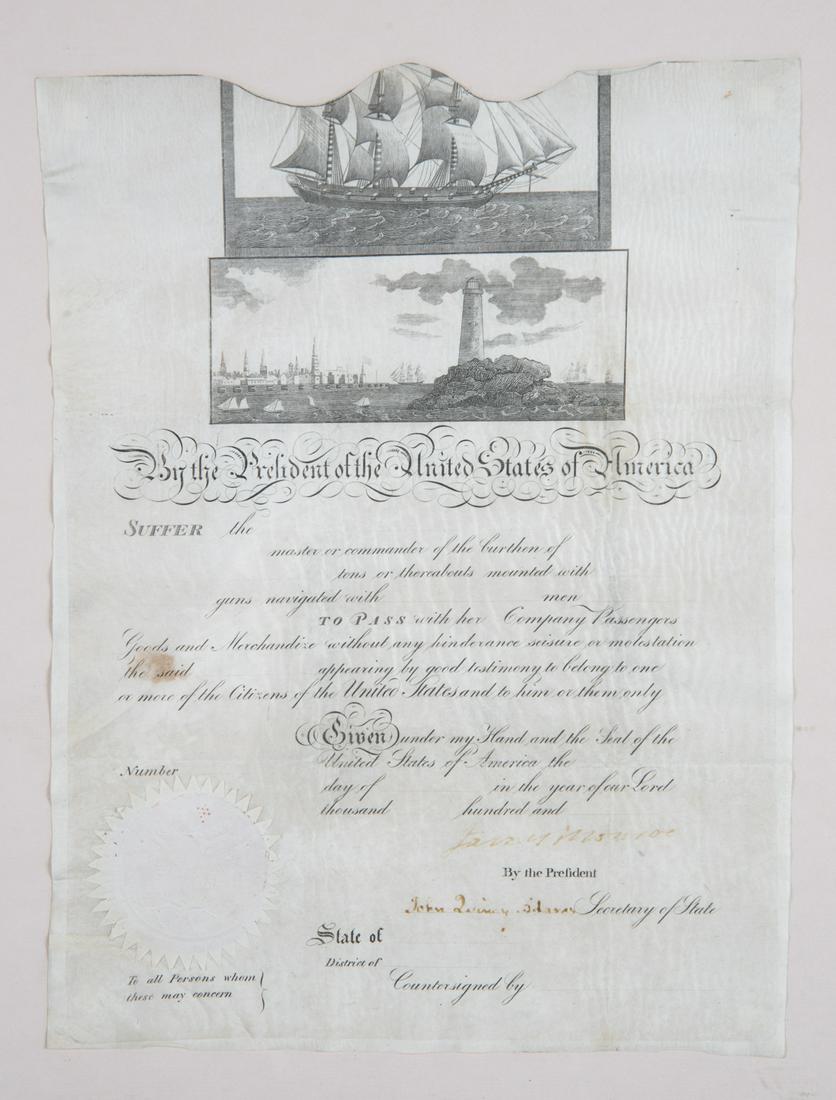 By the President of the United States of America
SUFFER the
master or commander of the burthen of
tons or thereabouts mounted with
guns navigated with men
TO PASS with her Company Passengers
Goods and Merchandize without any hinderance seisure or molestation
the said appearing by good testimony to belong to one
or more of the Citizens of the United States and to him or them only
Given under my Hand and the Seal of the
United States of America the
Number
day of in the year of our Lord
thousand hundred and
James Monroe
By the President
John Quincy Adams Secretary of State
State of
District of
To all Persons whom
these may concern
Countersigned by